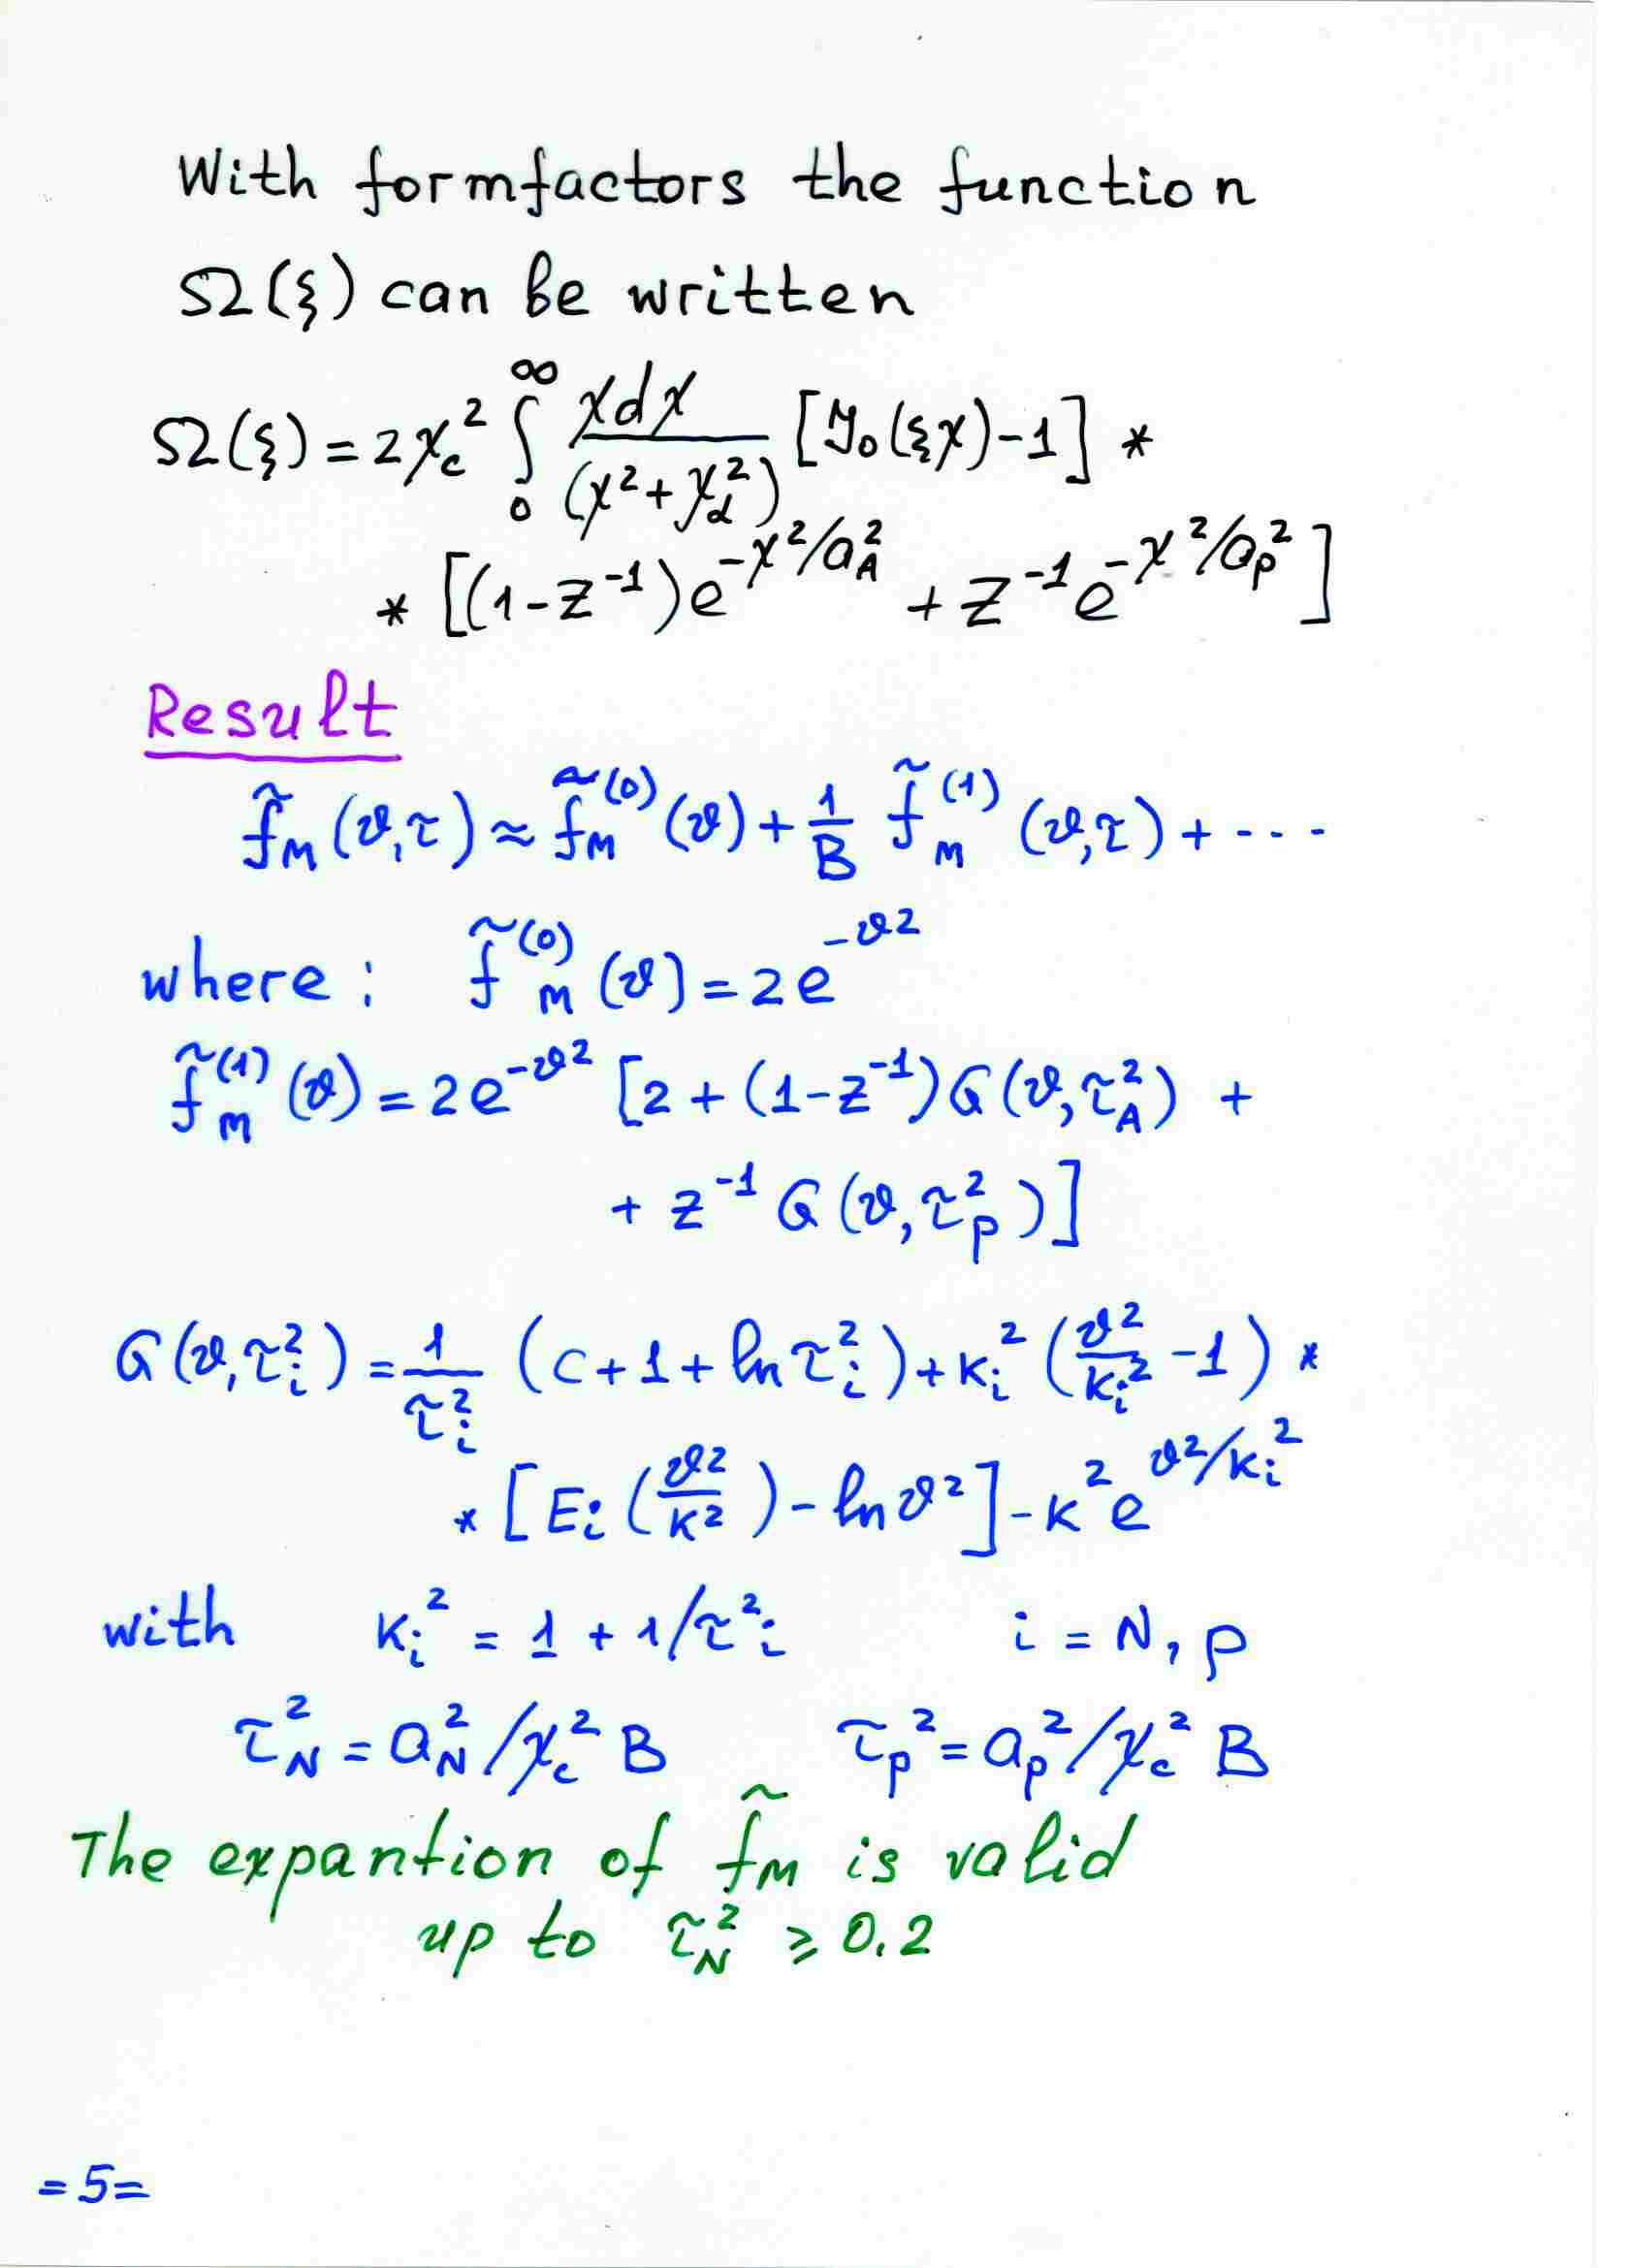 With formfactors the function
Ω(ξ) can be written
Ω(ξ) = 2χ_c² ∫₀^∞ χdχ/(χ²+χ_α²) [J₀(ξχ)-1] *
* [(1-Z⁻¹)e^(-χ²/a_A²) + Z⁻¹e^(-χ²/a_p²)]
Result
f̃_M(ϑ,τ) ≈ f̃_M^(0)(ϑ) + 1/B f̃_M^(1)(ϑ,τ) + ---
where: f̃_M^(0)(ϑ) = 2e^(-ϑ²)
f̃_M^(1)(ϑ) = 2e^(-ϑ²) [2 + (1-Z⁻¹)G(ϑ,τ_A²) +
+ Z⁻¹ G(ϑ,τ_p²)]
G(ϑ,τ_i²) = 1/τ_i² (C+1+ln τ_i²) + K_i² (ϑ²/K_i² -1) *
* [Ei(ϑ²/K²) - ln ϑ²] - K²e^(ϑ²/K_i²)
with K_i² = 1 + 1/τ²_i i = N, p
τ_N² = a_N²/χ_c² B τ_p² = a_p²/χ_c² B
The expantion of f̃_M is valid
up to τ_N² ≥ 0.2
=5=